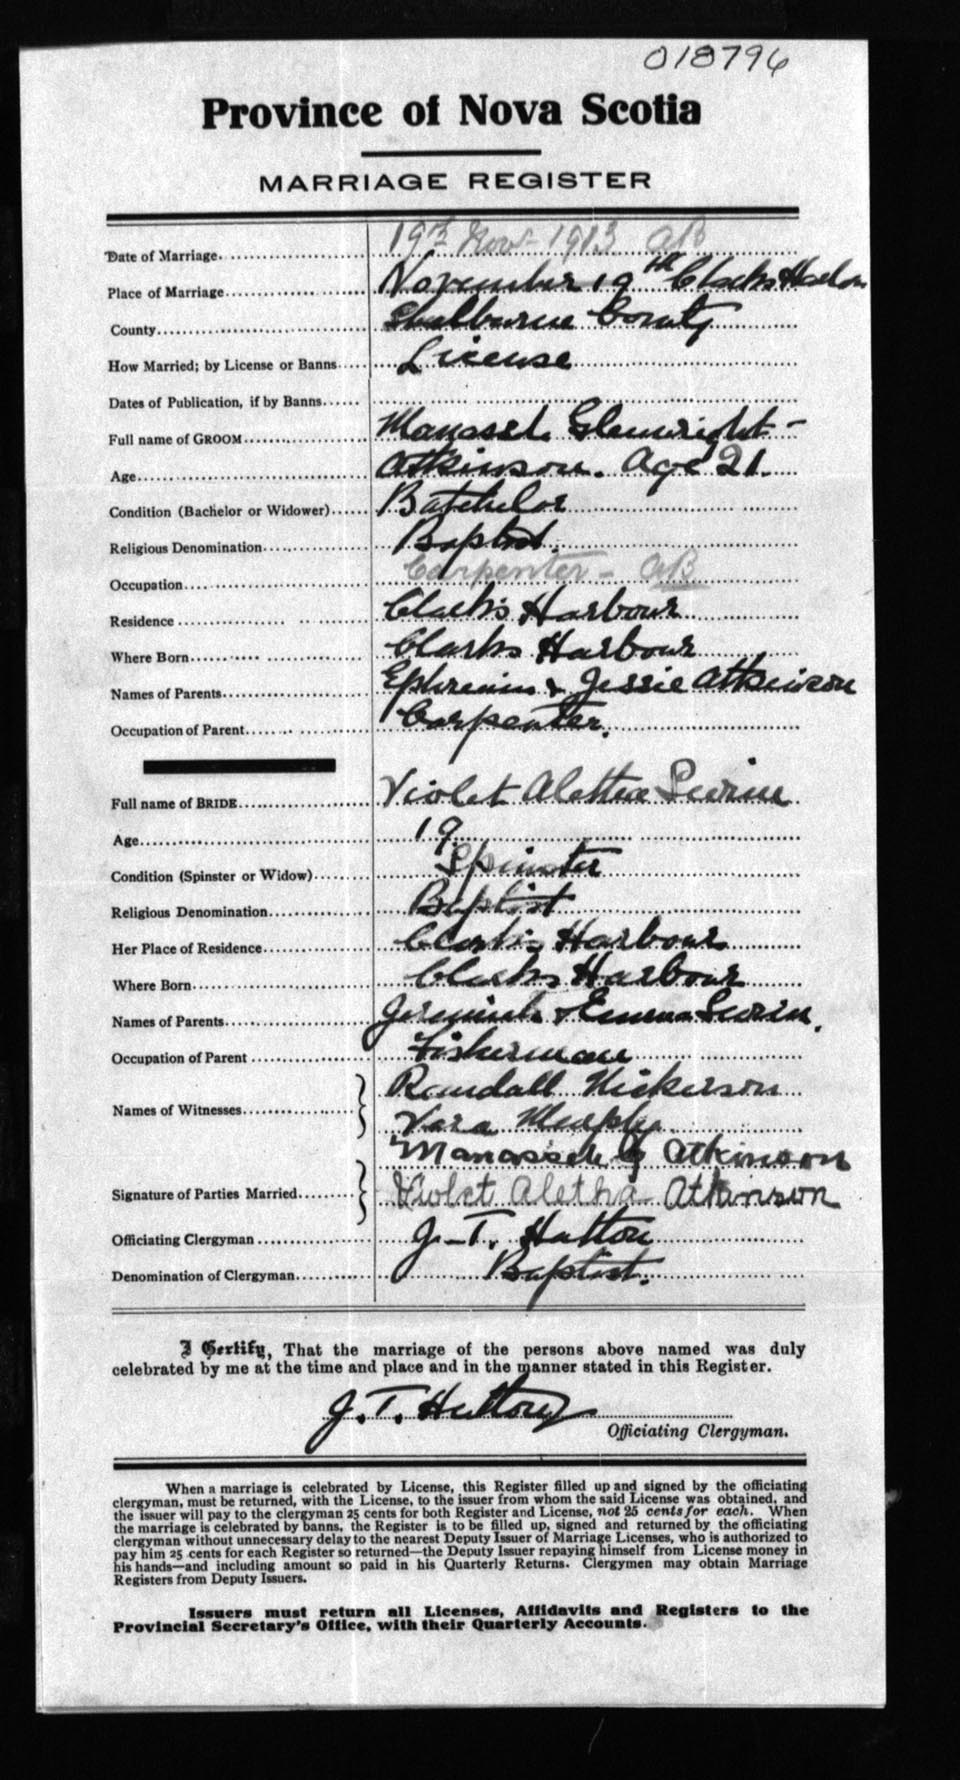 018796
Province of Nova Scotia
MARRIAGE REGISTER
Date of Marriage 19th Nov 1913 AB
Place of Marriage November 19th Clarks Harbor
County Shelburne County
How Married; by License or Banns License
Dates of Publication, if by Banns
Full name of GROOM Manasseh Glenwright -
Age Atkinson. Age 21.
Condition (Bachelor or Widower) Batchelor
Religious Denomination Baptist.
Occupation Carpenter - AB
Residence Clark's Harbour
Where Born Clarks Harbour
Names of Parents & Jessie Atkinson
Occupation of Parent Carpenter.
Full name of BRIDE Violet Alethea
Age 19
Condition (Spinster or Widow) Spinster
Religious Denomination Baptist
Her Place of Residence Clarks Harbour
Where Born Clarks Harbour
Names of Parents Jeremiah & Emma
Occupation of Parent Fisherman
Names of Witnesses Randall Nickerson
Vara Murphy.
Manasseh G Atkinson
Signature of Parties Married Violet Aletha Atkinson
Officiating Clergyman J. T. Hutton
Denomination of Clergyman Baptist.
I Certify, That the marriage of the persons above named was duly
celebrated by me at the time and place and in the manner stated in this Register.
J. T. Hutton
Officiating Clergyman.
When a marriage is celebrated by License, this Register filled up and signed by the officiating
clergyman, must be returned, with the License, to the issuer from whom the said License was obtained, and
the issuer will pay to the clergyman 25 cents for both Register and License, not 25 cents for each. When
the marriage is celebrated by banns, the Register is to be filled up, signed and returned by the officiating
clergyman without unnecessary delay to the nearest Deputy Issuer of Marriage Licenses, who is authorized to
pay him 25 cents for each Register so returned—the Deputy Issuer repaying himself from License money in
his hands—and including amount so paid in his Quarterly Returns. Clergymen may obtain Marriage
Registers from Deputy Issuers.
Issuers must return all Licenses, Affidavits and Registers to the
Provincial Secretary's Office, with their Quarterly Accounts.